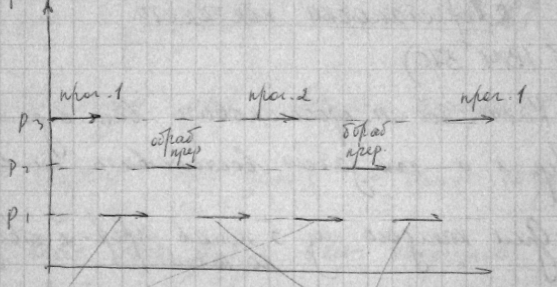 прог. 1 прог. 2 прог. 1
P3
обраб прер. обраб прер.
P2
P1